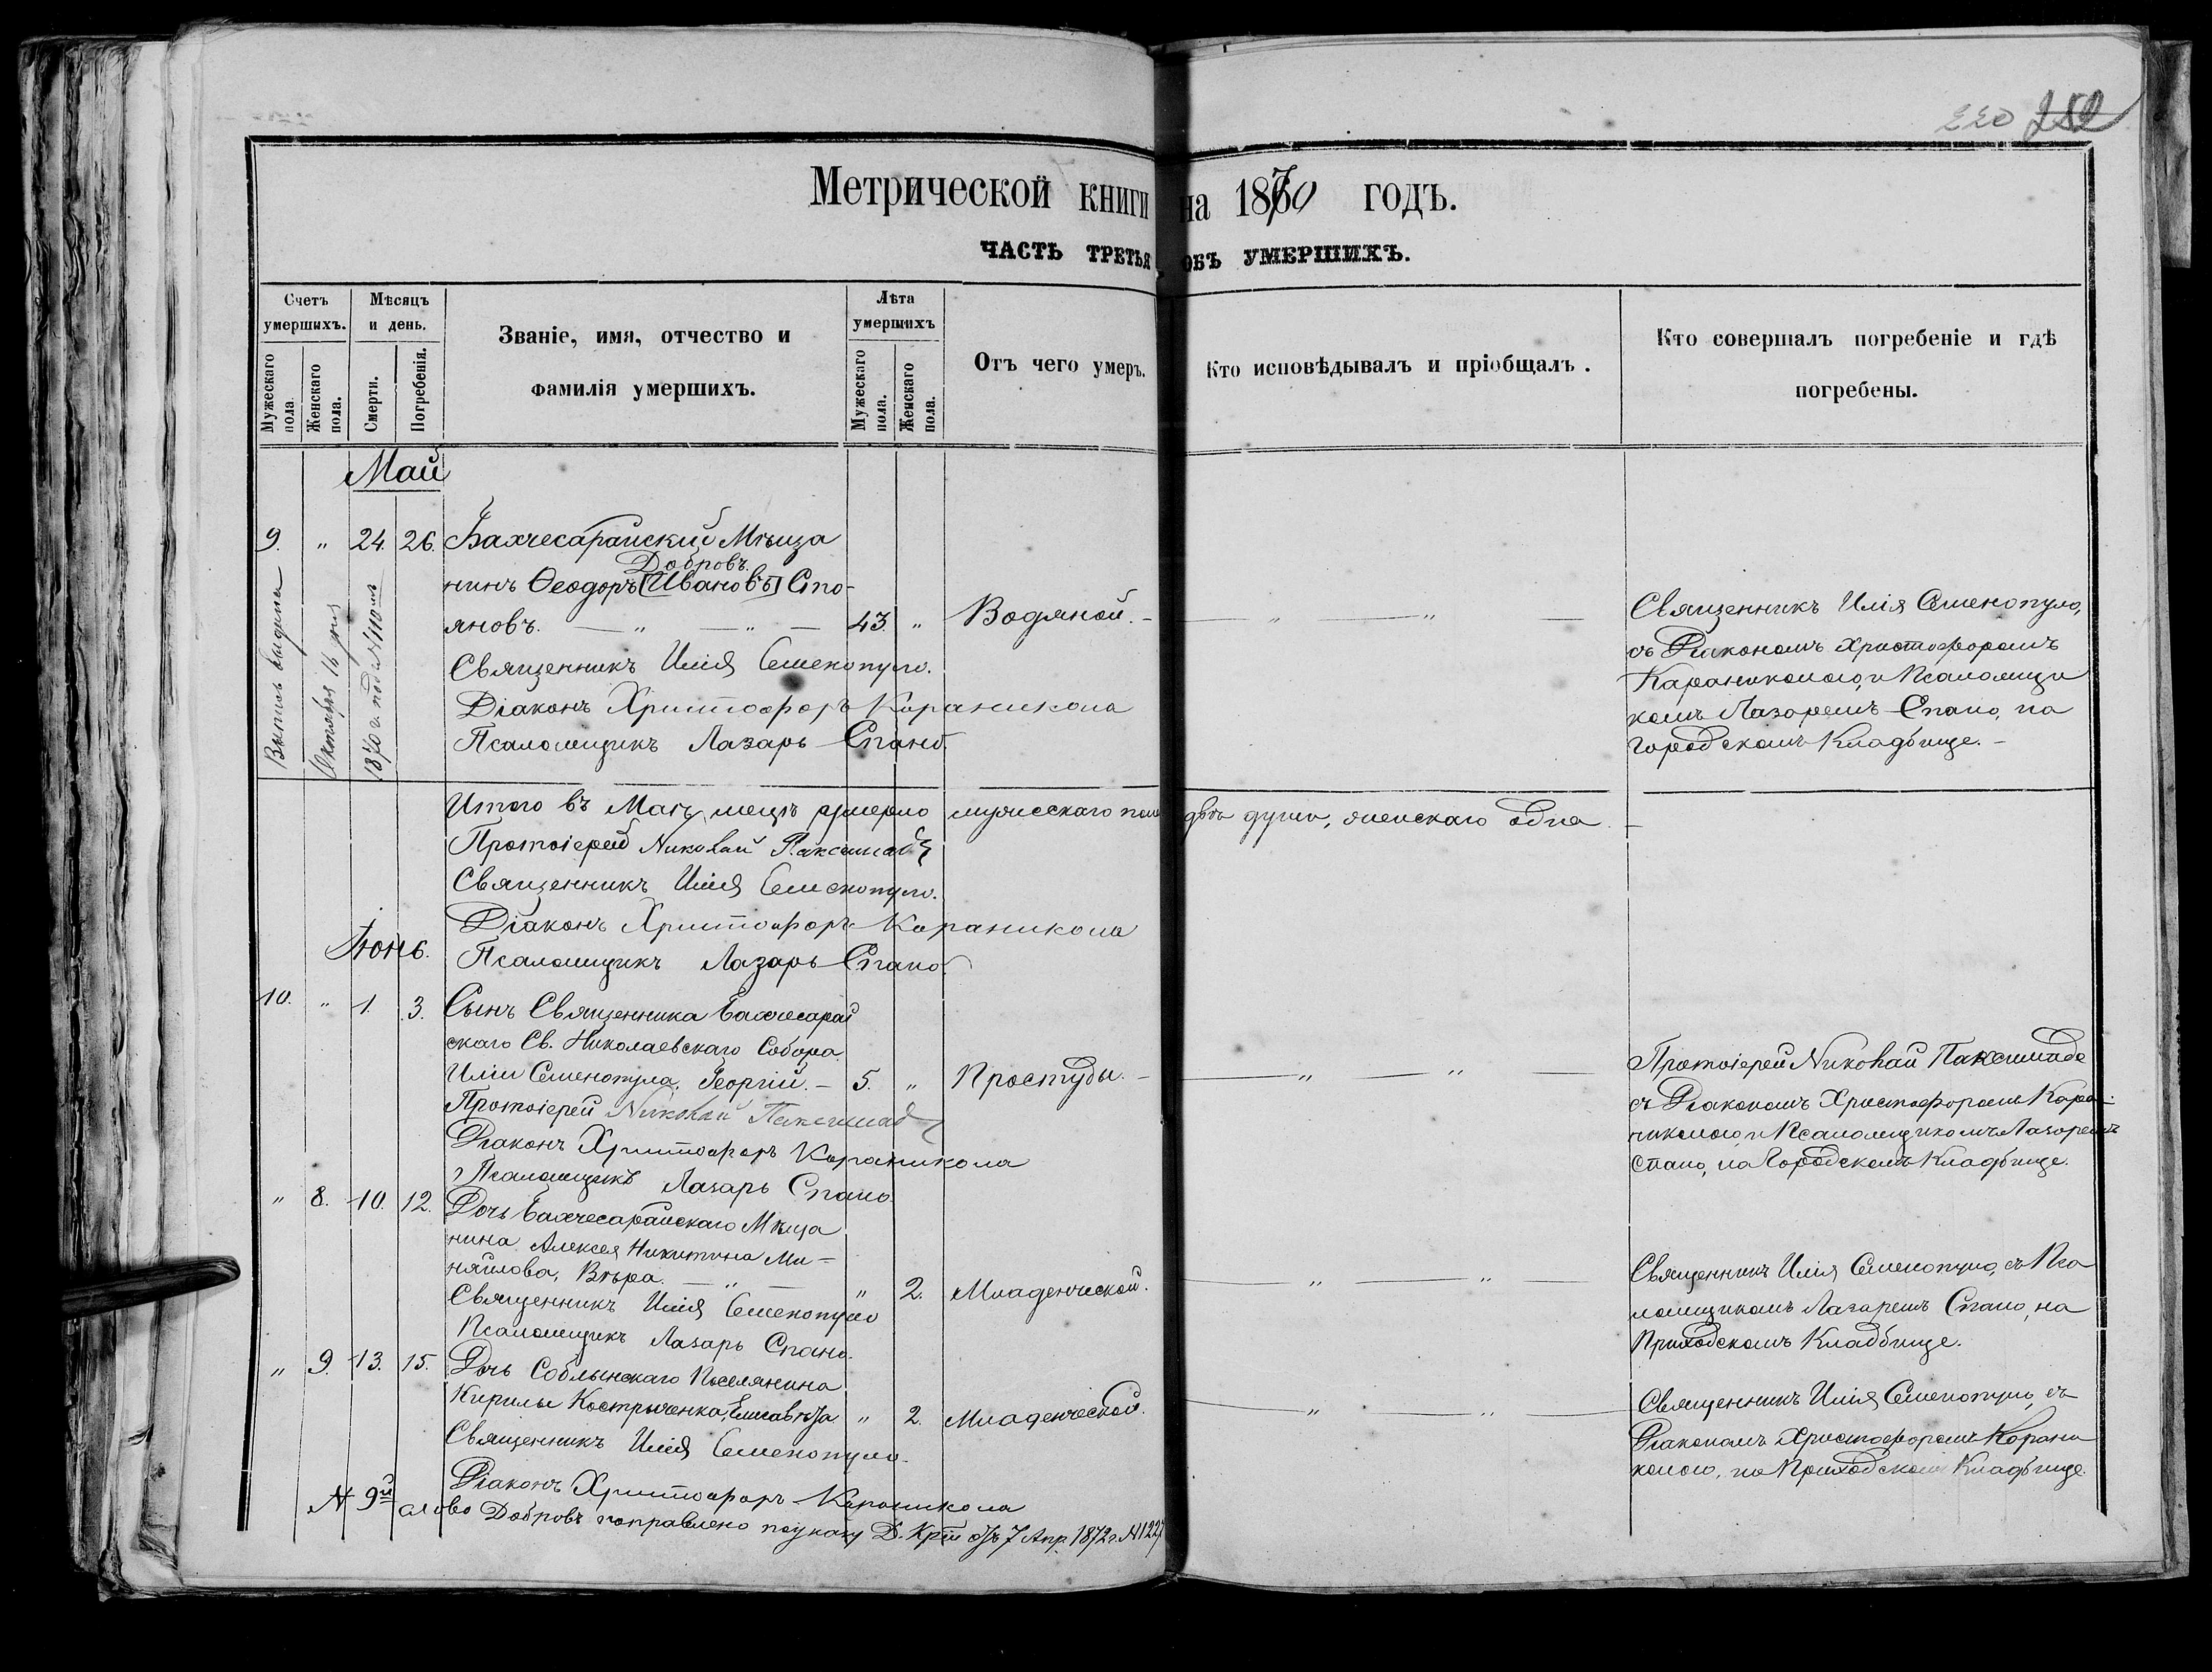 220 252
Метрической книги на 1870 годъ.
ЧАСТЬ ТРЕТЬЯ ОБЪ УМЕРШИХЪ.
Счетъ умершихъ.
Мужескаго пола.
Женскаго пола.
Мѣсяцъ и день.
Смерти.
Погребенія.
Званіе, имя, отчество и
фамилія умершихъ.
Лѣта умершихъ
Мужескаго пола.
Женскаго пола.
Отъ чего умеръ.
Кто исповѣдывалъ и пріобщалъ.
Кто совершалъ погребеніе и гдѣ
погребены.
Май
9. " 24. 26. Бахчесарайскій Мѣща
Добровъ.
нинъ Ѳеодоръ [Ивановъ] Сто-
яновъ. — " — " — 43. " Водяной. —
Священникъ Илія Семенопуло.
Діаконъ Христофоръ Караникола
Псаломщикъ Лазарь Спано.
Выпись выдана
Октября 16 дня
1870 г. подъ № 110мъ
Священникъ Илія Семенопуло,
съ Діакономъ Христофоромъ
Караниколою, и Псаломщи
комъ Лазаремъ Спано, на
Городскомъ Кладбище. —
Итого въ Маѣ мецѣ умерло мужескаго пола двѣ души, женскаго одна. —
Протоіерей Николай Паксимадѣ
Священникъ Илія Семенопуло.
Діаконъ Христофоръ Караникола
Псаломщикъ Лазарь Спано.
Іюнь.
10. " 1. 3. Сынъ Священника Бахчесарай
скаго Св. Николаевскаго Собора
Иліи Семенопула, Георгій. — 5. " Простуды. —
Протоіерей Николай Паксимадѣ
Діаконъ Христофоръ Караникола
Псаломщикъ Лазарь Спано.
Протоіерей Николай Паксимаде
съ Діакономъ Христофоромъ Кара-
николою, и Псаломщикомъ Лазаремъ
Спано, на Городскомъ Кладбище.
" 8. 10. 12. Дочь Бахчесарайскаго Мѣща
нина Алексея Никитина Ми-
няйлова, Вѣра. — " — " 2. Младенческой.
Священникъ Илія Семенопуло
Псаломщикъ Лазарь Спано.
Священникъ Илія Семенопуло, съ Пса
ломщикомъ Лазаремъ Спано, на
Приходскомъ Кладбище.
" 9. 13. 15. Дочь Соблынскаго Поселянина
Кирилы Кострыченка, Елисавѣта " 2. Младенческой.
Священникъ Илія Семенопуло.
Діаконъ Христофоръ Караникола
Священникъ Илія Семенопуло, съ
Діакономъ Христофоромъ Карани
колою, на Приходскомъ Кладбище.
№ 9й слово Добровъ поправлено по указу Д. Крiи отъ 7 Апр. 1872 г. № 1227